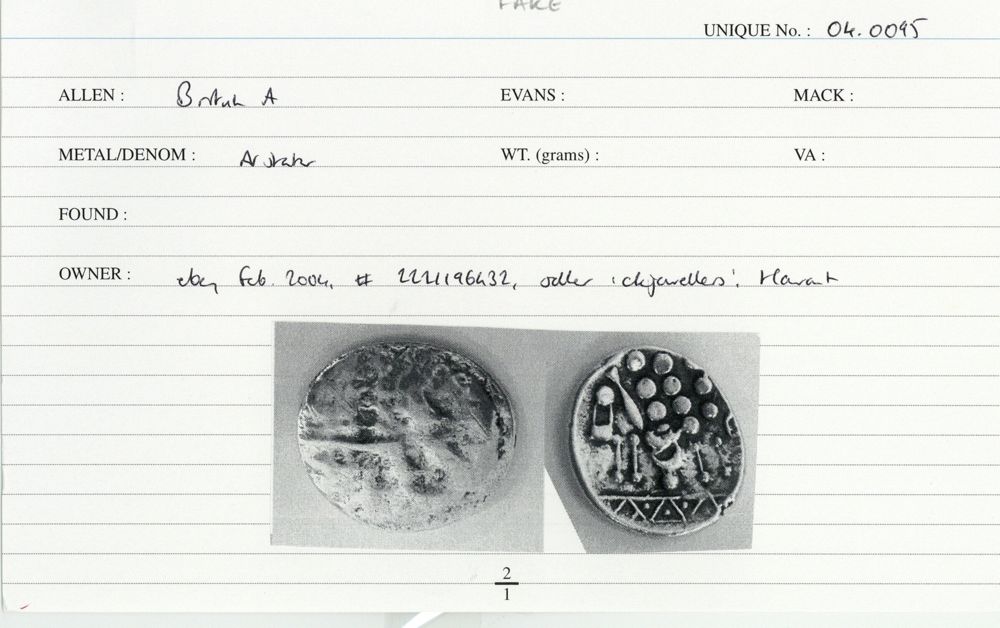 FAKE
UNIQUE No. : 04.0095
ALLEN : British A EVANS : MACK :
METAL/DENOM : AV stater WT. (grams) : VA :
FOUND :
OWNER : ebay Feb. 2004, # 2221196432, seller 'ckjewellers', Havant
2
1